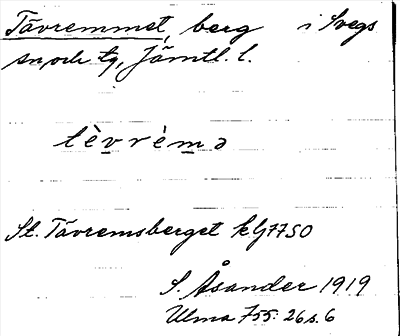 Tåvremmet, berg i Svegs
sn, och tg, Jämtl. l.
tèvrèmə
St. Tåvremsberget kG7750
S. Åsander 1919
Ulma 755: 26 s. 6